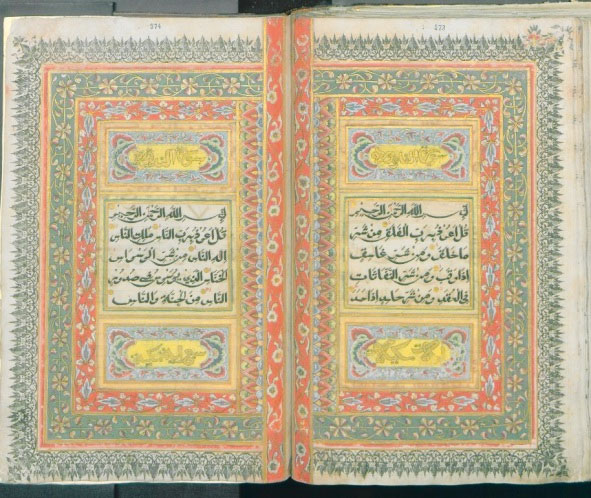 273
بسم الله الرحمن الرحيم
قل اعوذ برب الفلق من شر
ما خلق و من شر غاسق
اذا وقب و من شر النفاثات
في العقد و من شر حاسد اذا حسد
274
بسم الله الرحمن الرحيم
قل اعوذ برب الناس ملك الناس
اله الناس من شر الوسواس
الخناس الذي يوسوس في صدور
الناس من الجنة والناس